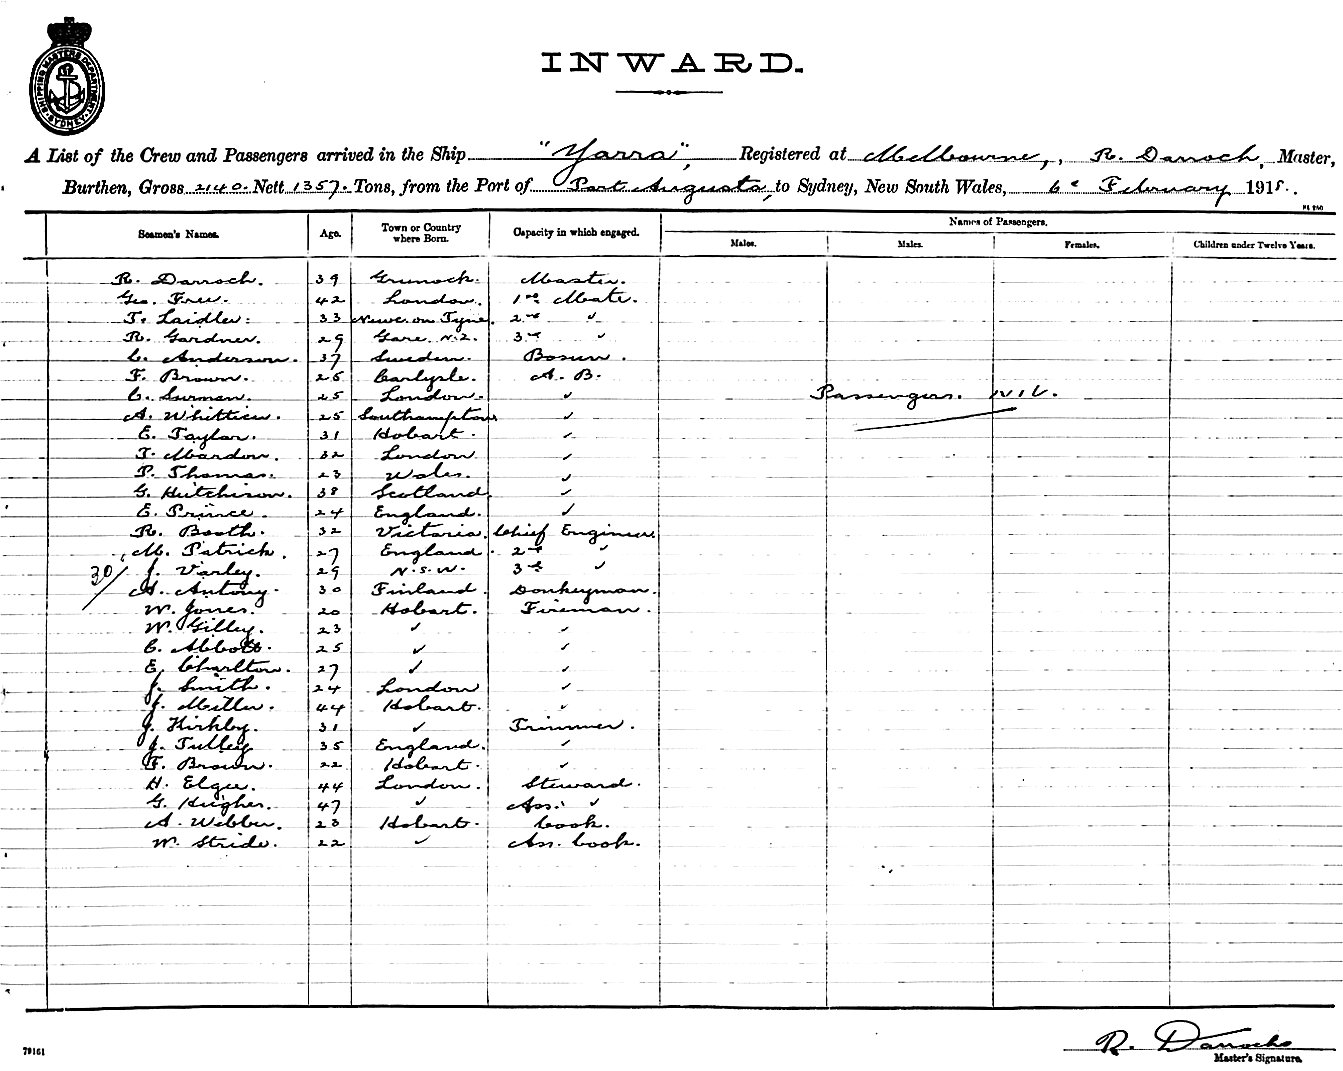 SHIPPING MASTERS DEPARTMENT SYDNEY
INWARD.
A List of the Crew and Passengers arrived in the Ship "Yarra", Registered at Melbourne, , R. Darroch, Master,
Burthen, Gross 2140. Nett 1357. Tons, from the Port of Port Augusta, to Sydney, New South Wales, 6th February 1918.
Names of Passengers.
Seamen's Names. Age. Town or Country where Born. Capacity in which engaged. Males. Males. Females. Children under Twelve Years.
R. Darroch. 39 Greenock. Master.
Geo. Free. 42 London. 1st Mate.
T. Laidler. 33 Newc. on Tyne. 2nd "
R. Gardner. 29 Gore N.Z. 3rd "
C. Anderson. 37 Sweden. Bosun.
F. Brown. 26 Carlysle. A. B.
C. Surman. 25 London. "
Passengers. NIL.
A. Whittier. 25 Southampton "
E. Taylor. 31 Hobart. "
T. Mardon. 32 London "
P. Thomas. 23 Wales. "
G. Hutchison. 38 Scotland "
E. Prince. 24 England. "
R. Booth. 32 Victoria. Chief Engineer.
M. Patrick. 27 England. 2nd "
30/ J. Varley. 29 N.S.W. 3rd "
A. Antony. 30 Finland. Donkeyman.
W. Jones. 20 Hobart. Fireman.
W. Gilley. 23 " "
C. Abbott. 25 " "
E. Charlton. 27 " "
J. Smith. 24 London "
J. Miller. 44 Hobart. "
J. Kirkby. 31 " Trimmer.
J. Tulley 35 England. "
F. Brown. 22 Hobart. "
H. Elgee. 44 London. Steward.
G. Hughes. 47 " Ass. "
A. Webber. 23 Hobart. Cook.
W. Stride. 22 " Ass. Cook.
R. Darroch
Master's Signature.
79161